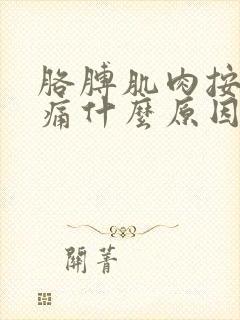 胳膊肌肉按
痛什麼原因
關菁